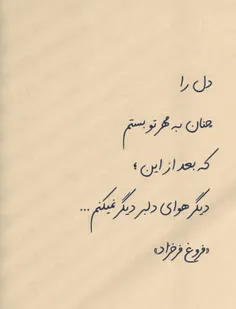 دل را
چنان به مهر تو بستم
که بعد از این ؛
دیگر هوای دلبر دیگر نمیکنم ...
«فروغ فرخزاد»